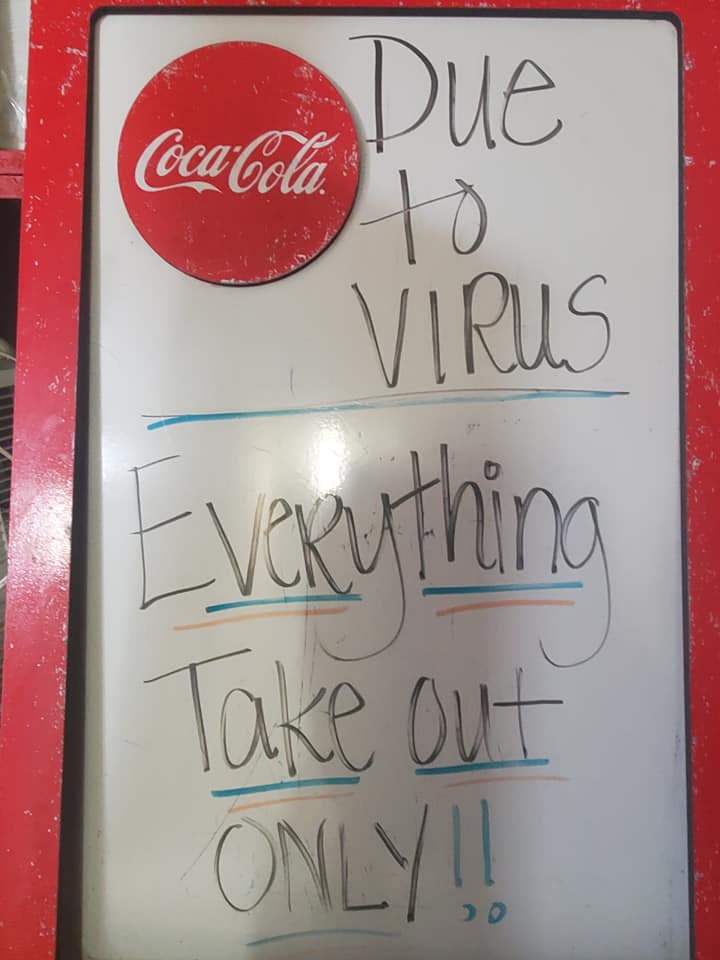 Coca-Cola
Due
to
VIRUS
Everything
Take out
ONLY!!